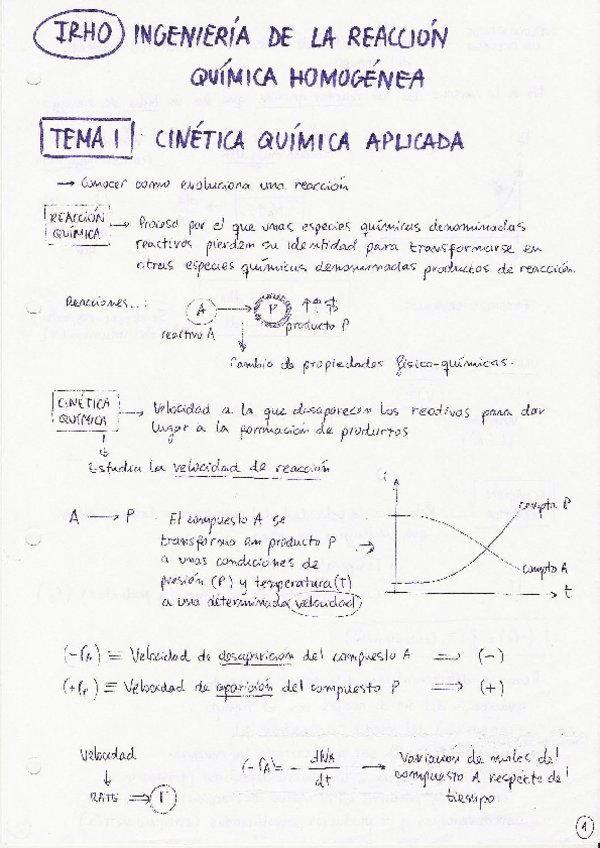 IRHO INGENIERÍA DE LA REACCIÓN
QUÍMICA HOMOGÉNEA
TEMA 1 CINÉTICA QUÍMICA APLICADA
→ Conocer como evoluciona una reacción
REACCIÓN QUÍMICA → Proceso por el que unas especies químicas denominadas
reactivos pierden su identidad para transformarse en
otras especies químicas denominadas productos de reacción.
Reacciones...: A → P ↑↑ $
reactivo A producto P
Cambio de propiedades físico-químicas.
CINÉTICA QUÍMICA → Velocidad a la que desaparecen los reactivos para dar
lugar a la formación de productos
Estudia la velocidad de reacción
A → P El compuesto A se
transforma en producto P
a unas condiciones de
presión (P) y temperatura (T)
a una determinada velocidad
cempto P
cempto A
t
(-rA) ≡ Velocidad de desaparición del compuesto A ⇒ (-)
(+rP) ≡ Velocidad de aparición del compuesto P ⇒ (+)
Velocidad
RATE ⇒ r
(-rA) = - dNA / dt → Variación de moles del
compuesto A respecto del
tiempo
1